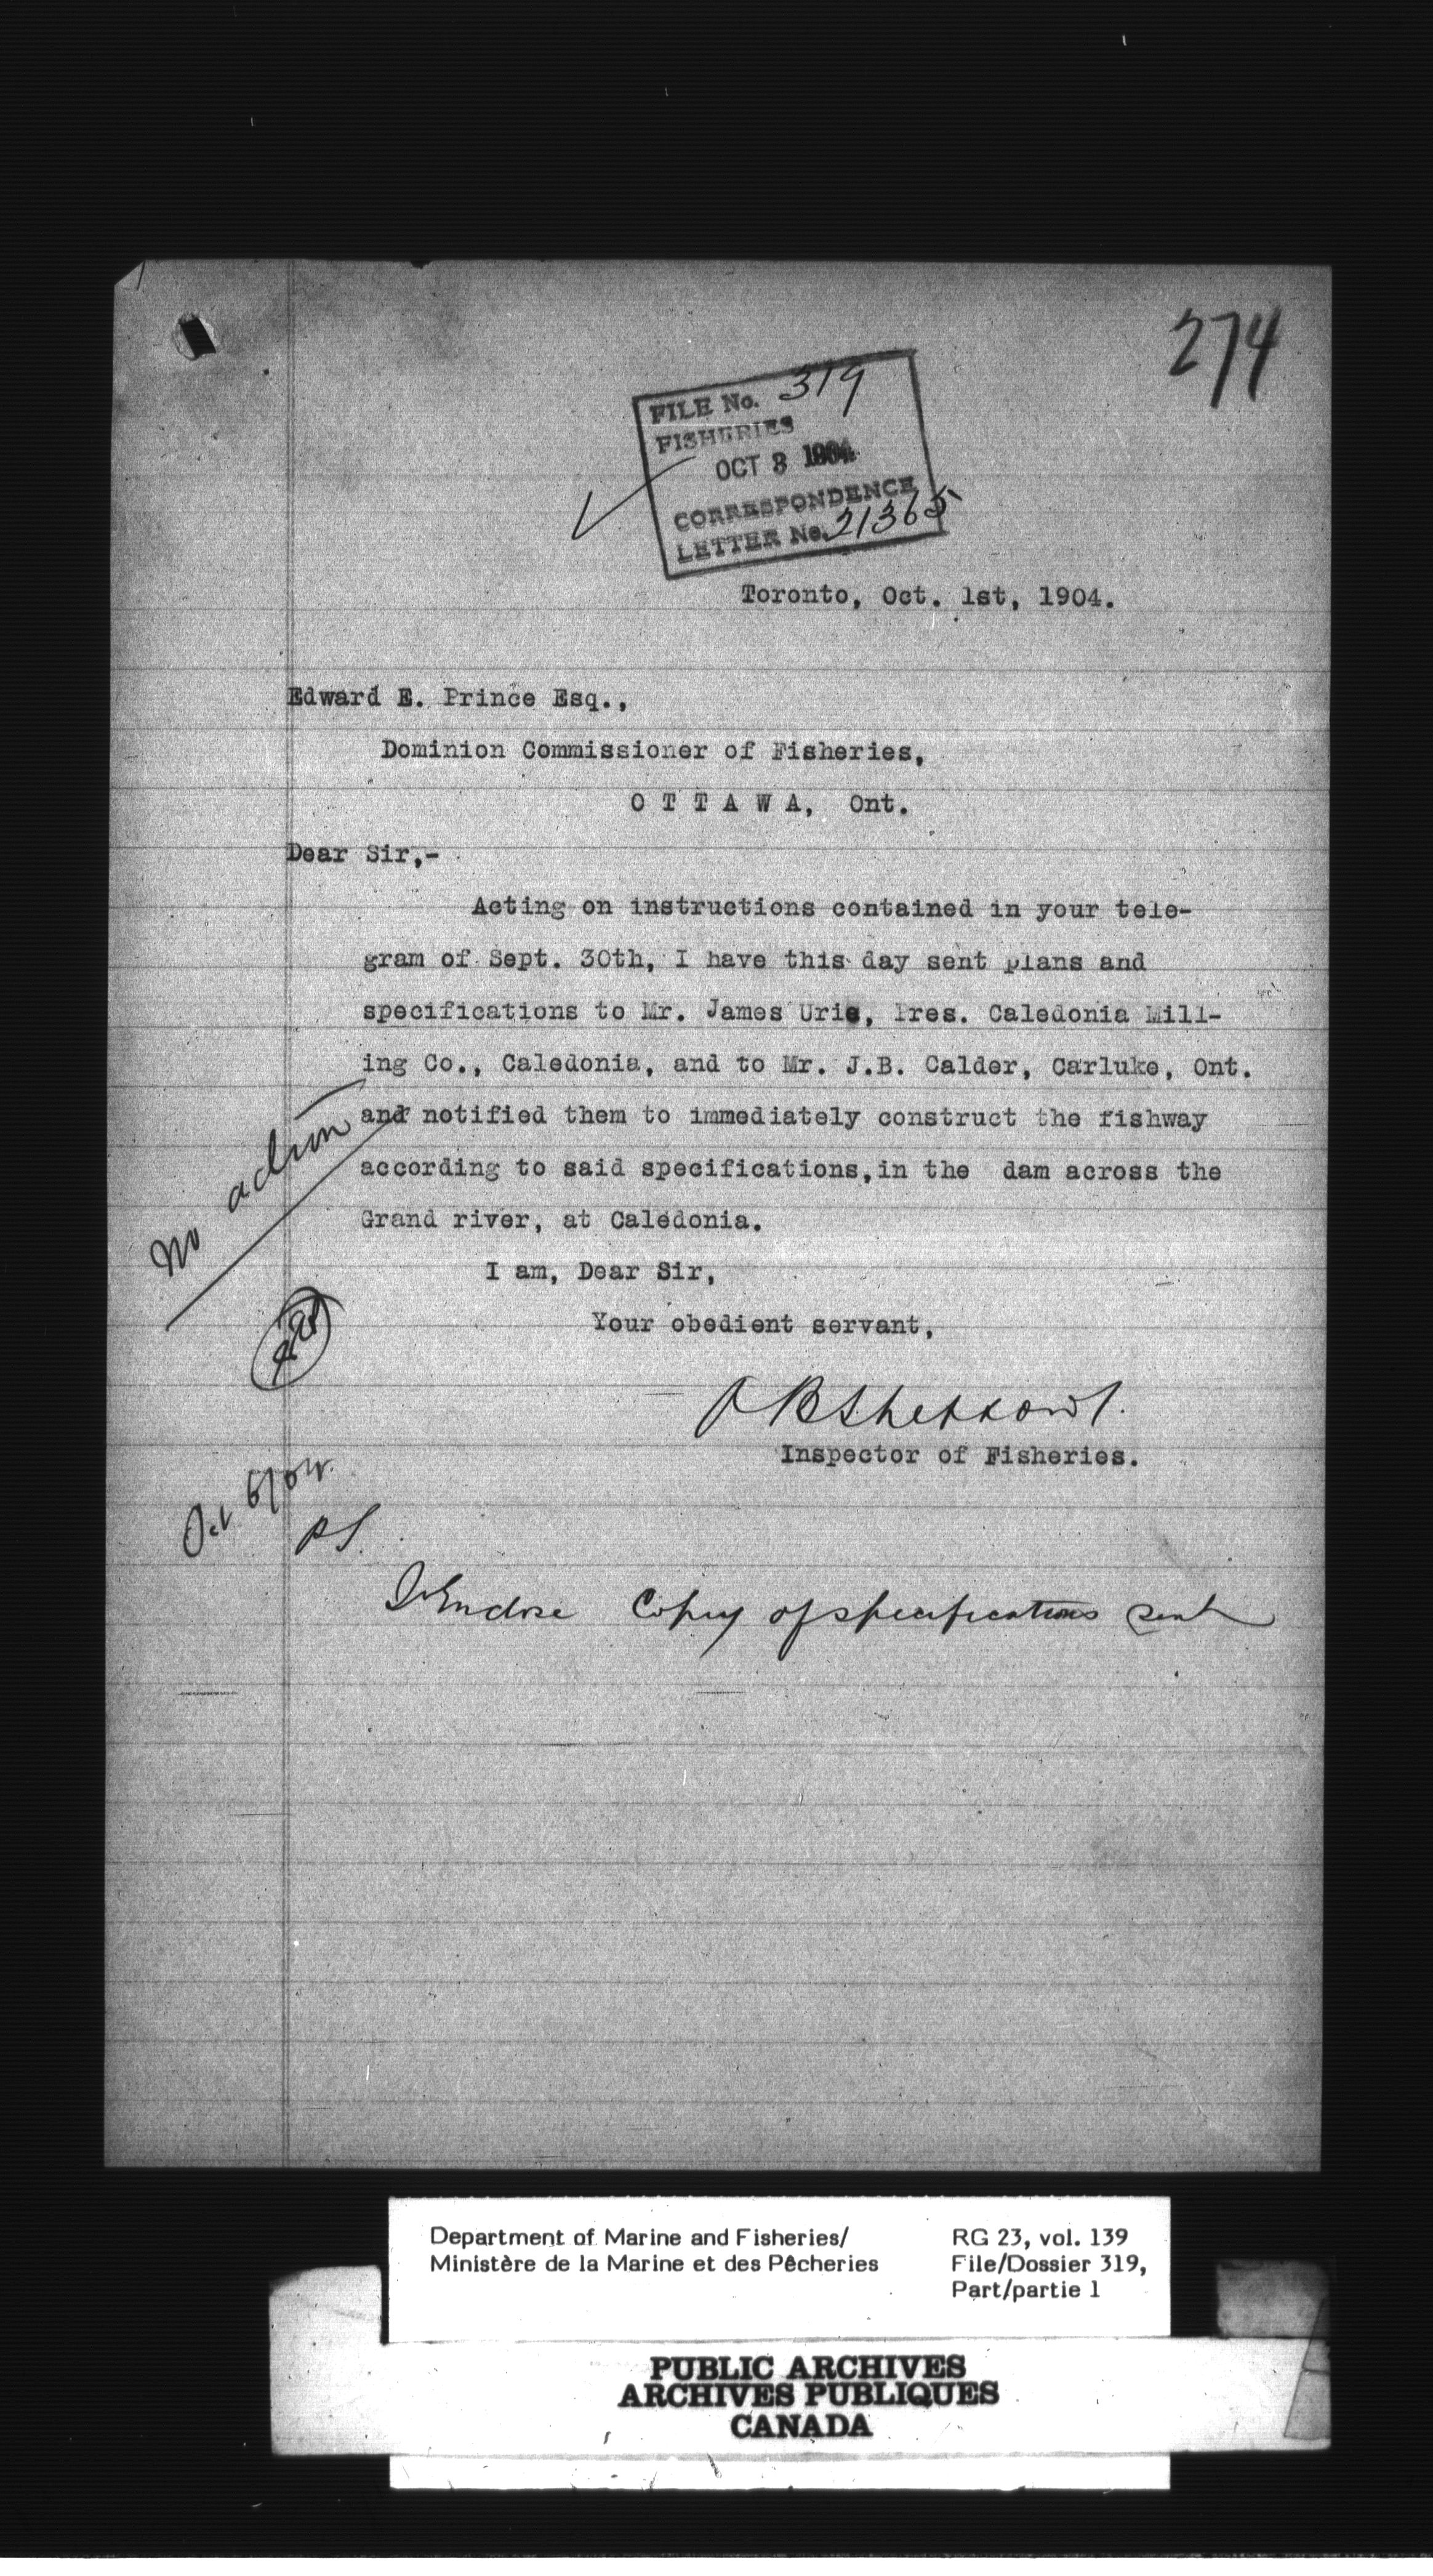 274
FILE No. 319
FISHERIES
OCT 3 1904
CORRESPONDENCE
LETTER No. 21365
Toronto, Oct. 1st, 1904.
Edward E. Prince Esq.,
Dominion Commissioner of Fisheries,
O T T A W A, Ont.
Dear Sir,-
Acting on instructions contained in your tele-
gram of Sept. 30th, I have this day sent plans and
specifications to Mr. James Urie, Pres. Caledonia Mill-
ing Co., Caledonia, and to Mr. J.B. Calder, Carluke, Ont.
and notified them to immediately construct the fishway
according to said specifications, in the dam across the
Grand river, at Caledonia.
No action
I am, Dear Sir,
Your obedient servant,
Inspector of Fisheries.
Oct 5/04.
PS.
I Enclose Copy of specifications sent
Department of Marine and Fisheries/
Ministère de la Marine et des Pêcheries
RG 23, vol. 139
File/Dossier 319,
Part/partie 1
PUBLIC ARCHIVES
ARCHIVES PUBLIQUES
CANADA